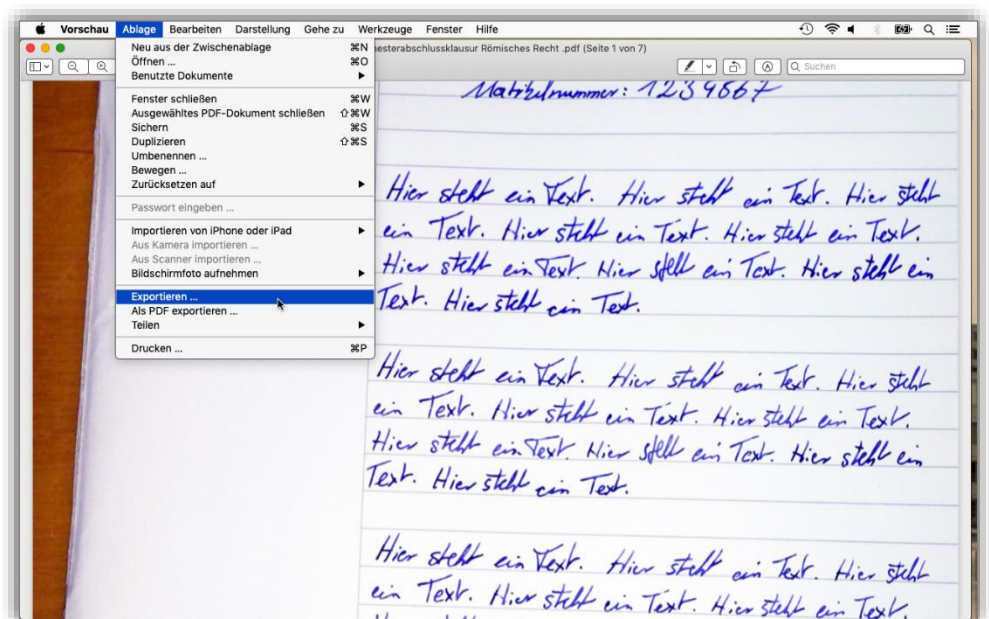 Vorschau Ablage Bearbeiten Darstellung Gehe zu Werkzeuge Fenster Hilfe
nesterabschlussklausur Römisches Recht .pdf (Seite 1 von 7)
Suchen
Neu aus der Zwischenablage ⌘N
Öffnen ... ⌘O
Benutzte Dokumente
Fenster schließen ⌘W
Ausgewähltes PDF-Dokument schließen ⇧⌘W
Sichern ⌘S
Duplizieren ⇧⌘S
Umbenennen ...
Bewegen ...
Zurücksetzen auf
Passwort eingeben ...
Importieren von iPhone oder iPad
Aus Kamera importieren ...
Aus Scanner importieren ...
Bildschirmfoto aufnehmen
Exportieren ...
Als PDF exportieren ...
Teilen
Drucken ... ⌘P
Matrikelnummer: 1234567
Hier steht ein Text. Hier steht ein Text. Hier steht
ein Text. Hier steht ein Text. Hier steht ein Text.
Hier steht ein Text. Hier stellt ein Text. Hier steht ein
Text. Hier steht ein Text.
Hier steht ein Text. Hier steht ein Text. Hier steht
ein Text. Hier steht ein Text. Hier steht ein Text.
Hier steht ein Text. Hier stellt ein Text. Hier steht ein
Text. Hier steht ein Text.
Hier steht ein Text. Hier steht ein Text. Hier steht
ein Text. Hier steht ein Text. Hier steht ein Text.